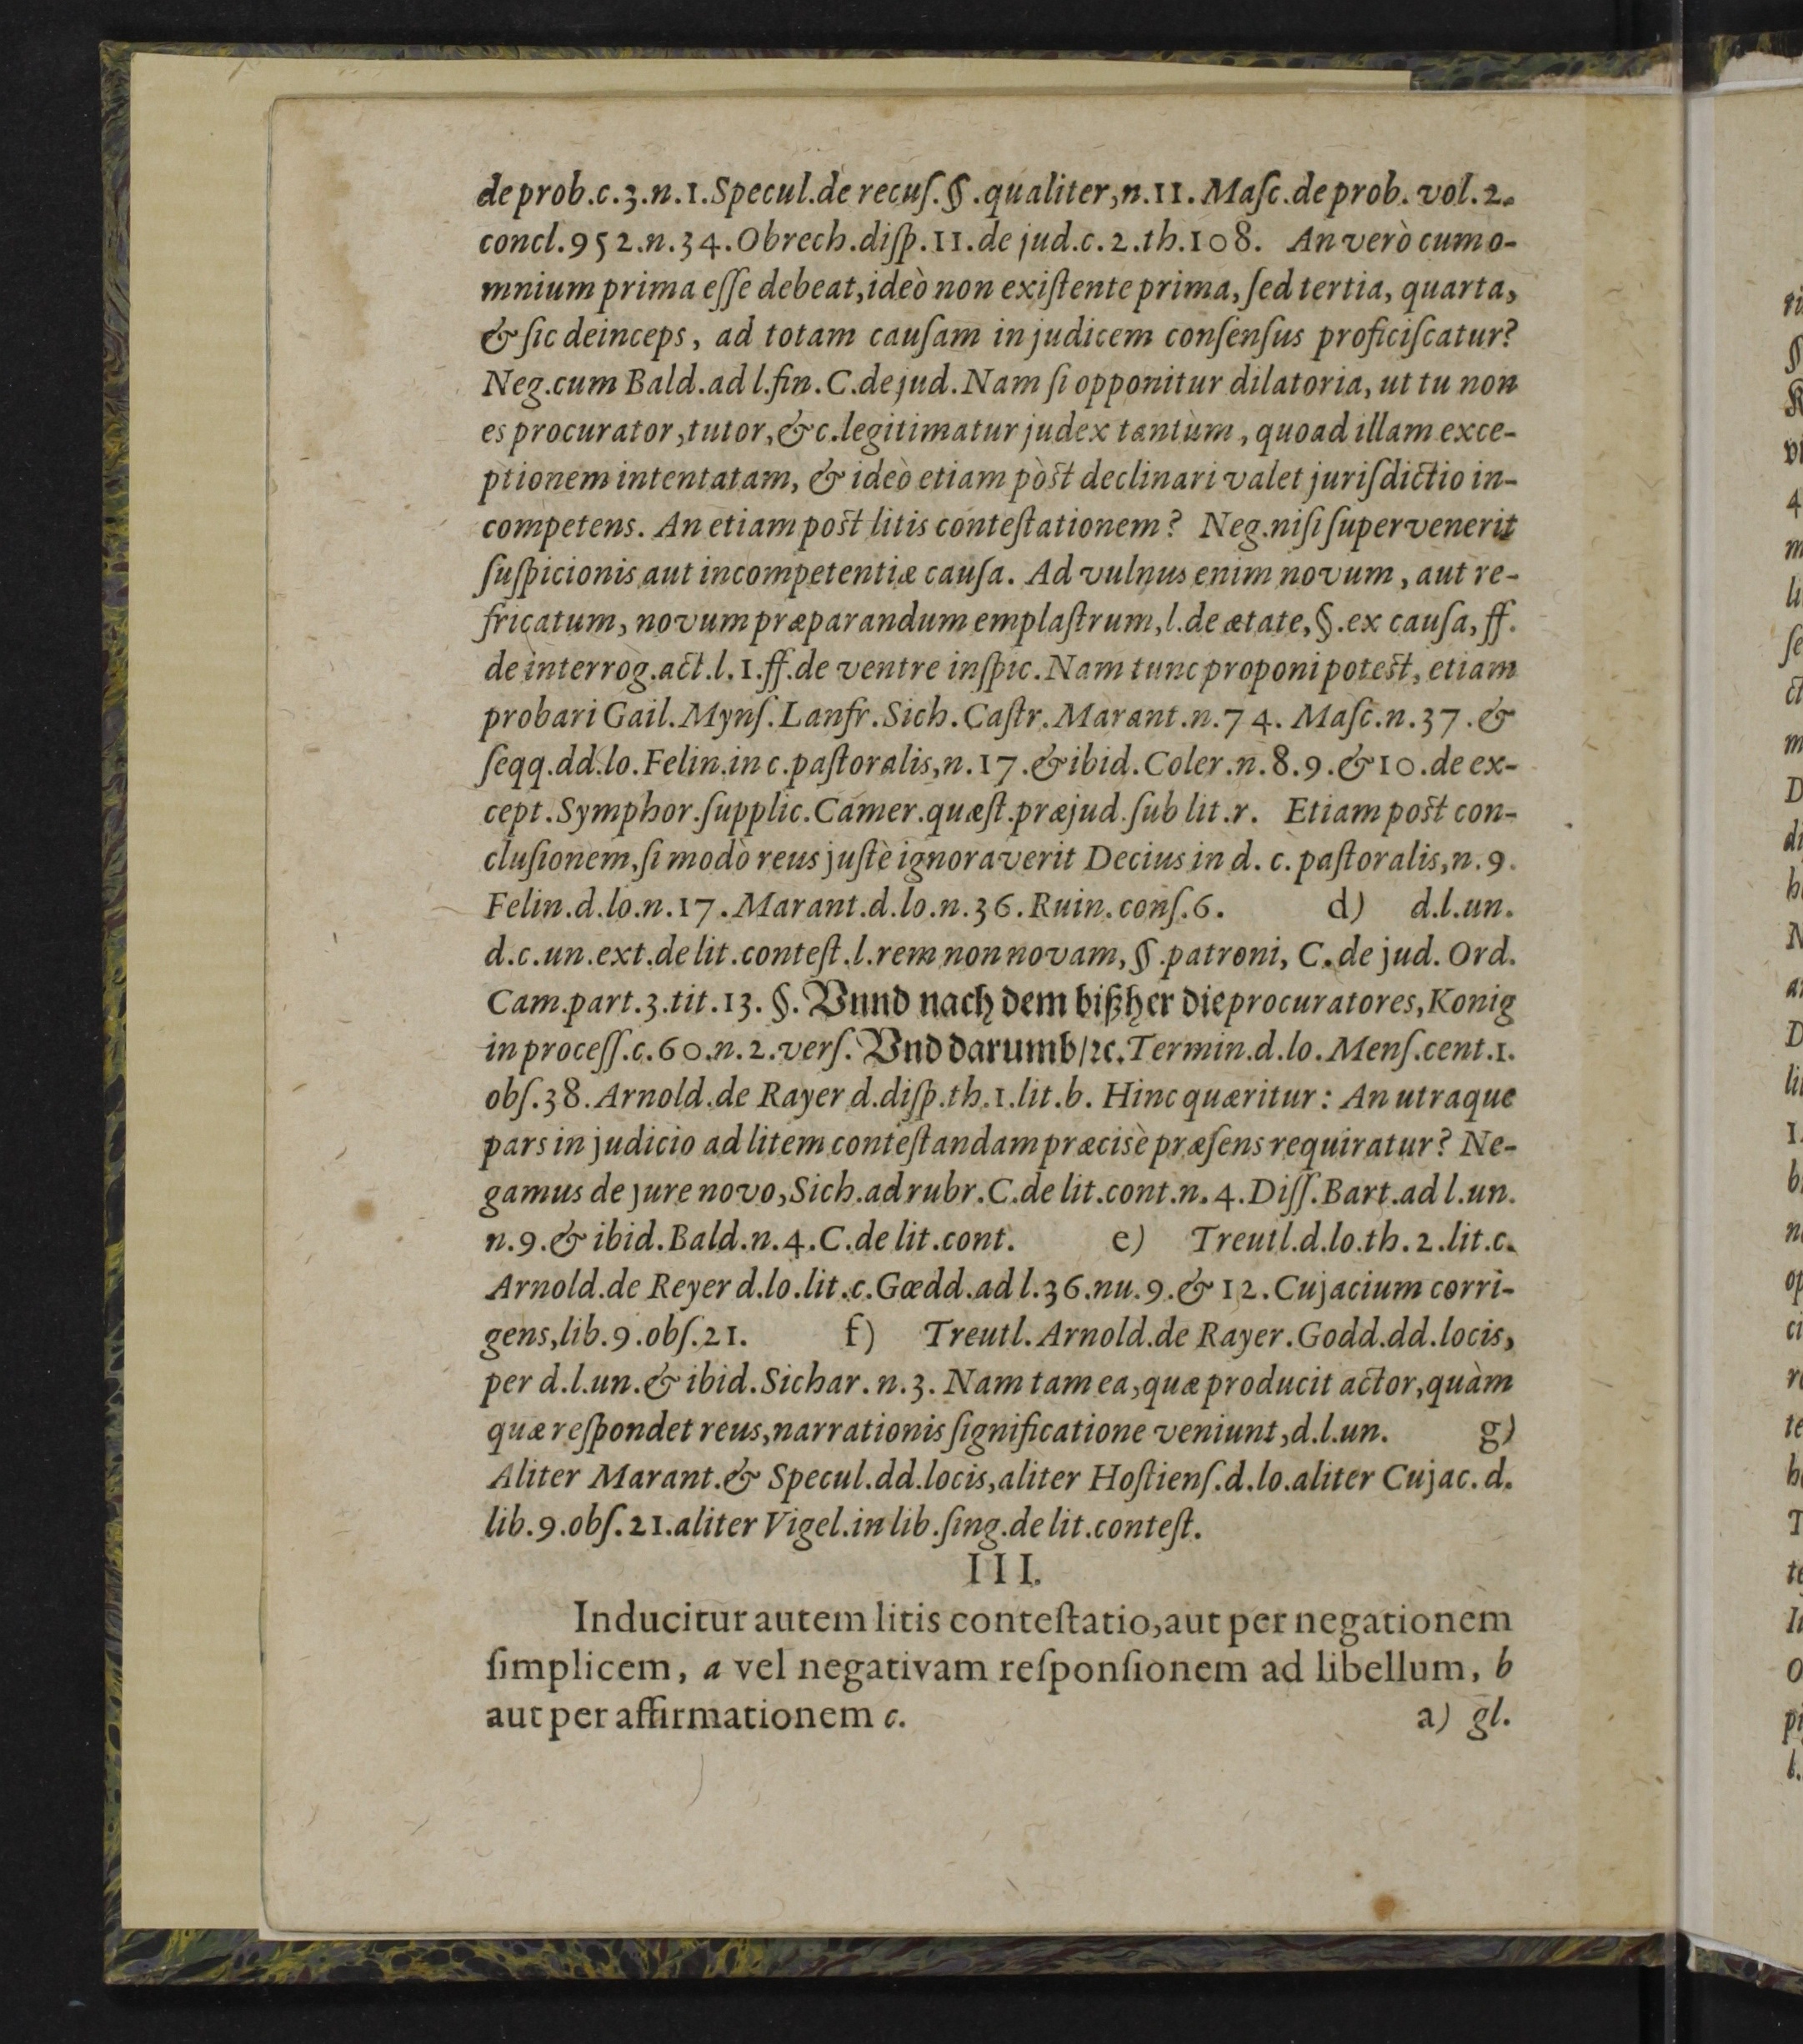 de prob.c.3.n.1.Specul.de recuſ.§.qualiter,n.11. Maſc.de prob. vol.2.
concl.952.n.34.Obrech.diſp.11.de jud.c.2.th.108. An verò cum o-
mnium prima eſſe debeat,ideò non exiſtente prima, ſed tertia, quarta,
& ſic deinceps, ad totam cauſam in judicem conſenſus proficiſcatur?
Neg.cum Bald.ad l.fin.C.de jud.Nam ſi opponitur dilatoria, ut tu non
es procurator,tutor,&c.legitimatur judex tantùm, quoad illam exce-
ptionem intentatam, & ideò etiam pòst declinari valet juriſdictio in-
competens. An etiam post litis conteſtationem? Neg.niſi ſupervenerit
ſuſpicionis aut incompetentiæ cauſa. Ad vulnus enim novum, aut re-
fricatum, novum præparandum emplaſtrum,l.de ætate,§.ex cauſa,ff.
de interrog.act.l.1.ff.de ventre inſpic.Nam tunc proponi potest, etiam
probari Gail.Mynſ.Lanfr.Sich.Caſtr.Marant.n.74. Maſc.n.37.&
ſeqq.dd.lo.Felin.in c.paſtoralis,n.17.& ibid.Coler.n.8.9.&10.de ex-
cept.Symphor.ſupplic.Camer.quæſt.præjud.ſub lit.r. Etiam post con-
cluſionem,ſi modò reus juſtè ignoraverit Decius in d. c. paſtoralis,n.9.
Felin.d.lo.n.17.Marant.d.lo.n.36.Ruin.conſ.6. d) d.l.un.
d.c.un.ext.de lit.conteſt.l.rem non novam,§.patroni, C.de jud. Ord.
Cam.part.3.tit.13. §. Vnnd nach dem bißher die procuratores,Konig
in proceſſ.c.60.n.2.verſ. Vnd darumb/ꝛc.Termin.d.lo.Menſ.cent.1.
obſ.38.Arnold.de Rayer d.diſp.th.1.lit.b. Hinc quæritur: An utraque
pars in judicio ad litem conteſtandam præcisè præſens requiratur? Ne-
gamus de jure novo,Sich.ad rubr.C.de lit.cont.n.4.Diſſ.Bart.ad l.un.
n.9.& ibid.Bald.n.4.C.de lit.cont. e) Treutl.d.lo.th.2.lit.c.
Arnold.de Reyer d.lo.lit.c.Gœdd.ad l.36.nu.9.& 12.Cujacium corri-
gens,lib.9.obſ.21. f) Treutl.Arnold.de Rayer.Godd.dd.locis,
per d.l.un.& ibid.Sichar.n.3. Nam tam ea,quæ producit actor,quàm
quæ reſpondet reus,narrationis ſignificatione veniunt,d.l.un. g)
Aliter Marant.& Specul.dd.locis,aliter Hoſtienſ.d.lo.aliter Cujac.d.
lib.9.obſ.21.aliter Vigel.in lib.ſing.de lit.conteſt.
III.
Inducitur autem litis conteſtatio,aut per negationem
ſimplicem, a vel negativam reſponſionem ad libellum, b
aut per affirmationem c. a) gl.